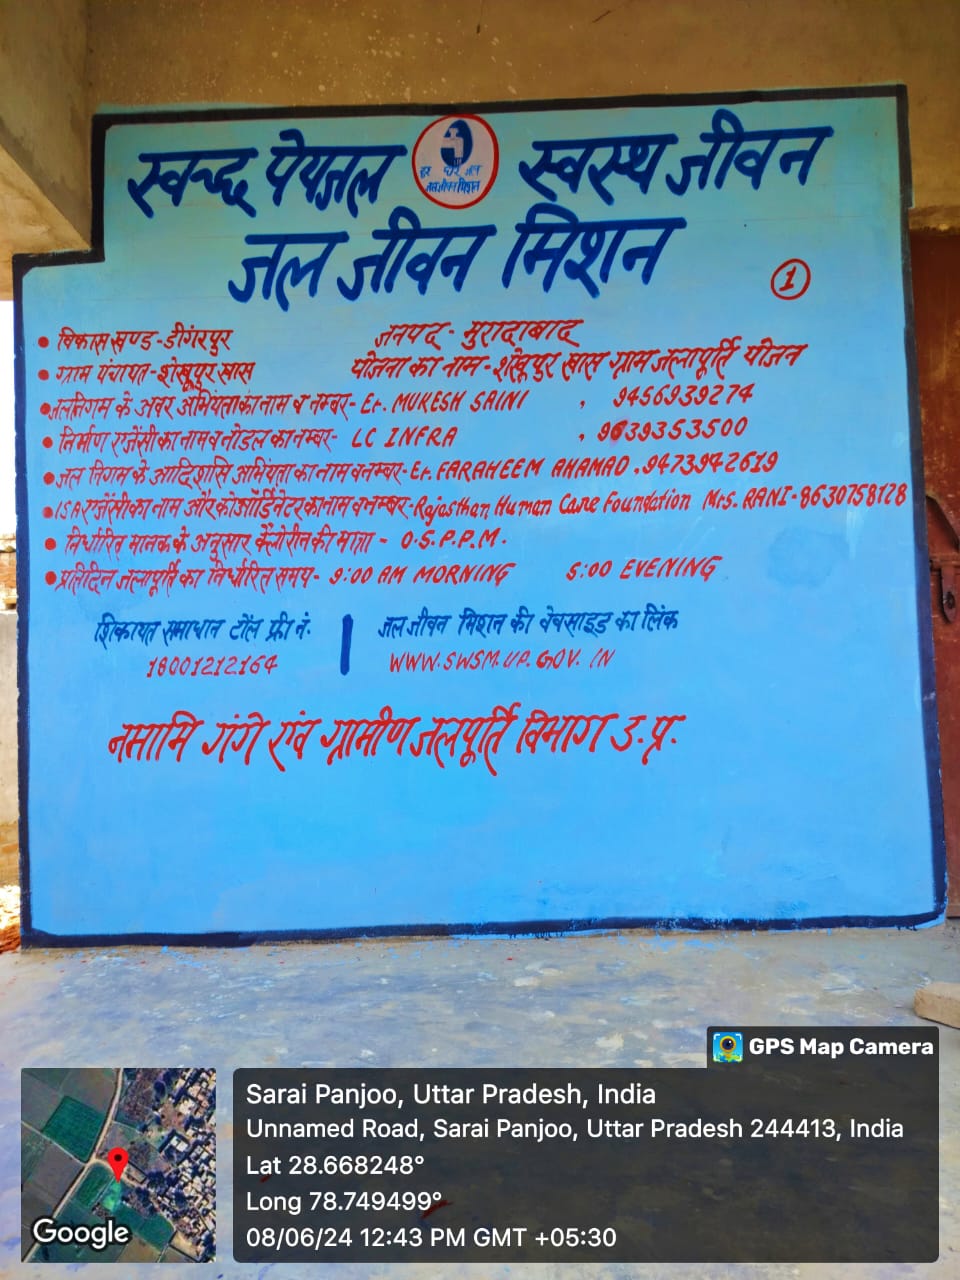 स्वच्छ पेयजल स्वस्थ जीवन
हर घर जल
जल जीवन मिशन
जल जीवन मिशन
1
• विकास खण्ड-डींगरपुर जनपद-मुरादाबाद
• ग्राम पंचायत-शेखूपुर खास योजना का नाम-शेखूपुर खास ग्राम जलापूर्ति योजन
• जलनिगम के अवर अभियंता का नाम व नम्बर-Er. MUKESH SAINI , 9456939274
• निर्माण एजेंसी का नाम व नोडल का नम्बर- LC INFRA , 9639353500
• जल निगम के आदिशासि अभियंता का नाम व नम्बर-Er. FARAHEEM AHAMAD.9473942619
• ISA एजेंसी का नाम और कोऑर्डिनेटर का नाम व नम्बर-Rajasthan Human Care Foundation Mrs. RANI-8630758178
• निर्धारित मानक के अनुसार क्लोरीन की मात्रा - 0.5.P.P.M.
• प्रतिदिन जलापूर्ति का निर्धारित समय- 9:00 AM MORNING 5:00 EVENING
शिकायत समाधान टॉल फ्री नं. | जल जीवन मिशन की वेबसाइड का लिंक
18001212164 WWW.SWSM.UP.GOV.IN
नमामि गंगे एंव ग्रामीण जलपूर्ति विभाग उ.प्र.
GPS Map Camera
Sarai Panjoo, Uttar Pradesh, India
Unnamed Road, Sarai Panjoo, Uttar Pradesh 244413, India
Lat 28.668248°
Long 78.749499°
08/06/24 12:43 PM GMT +05:30
Google